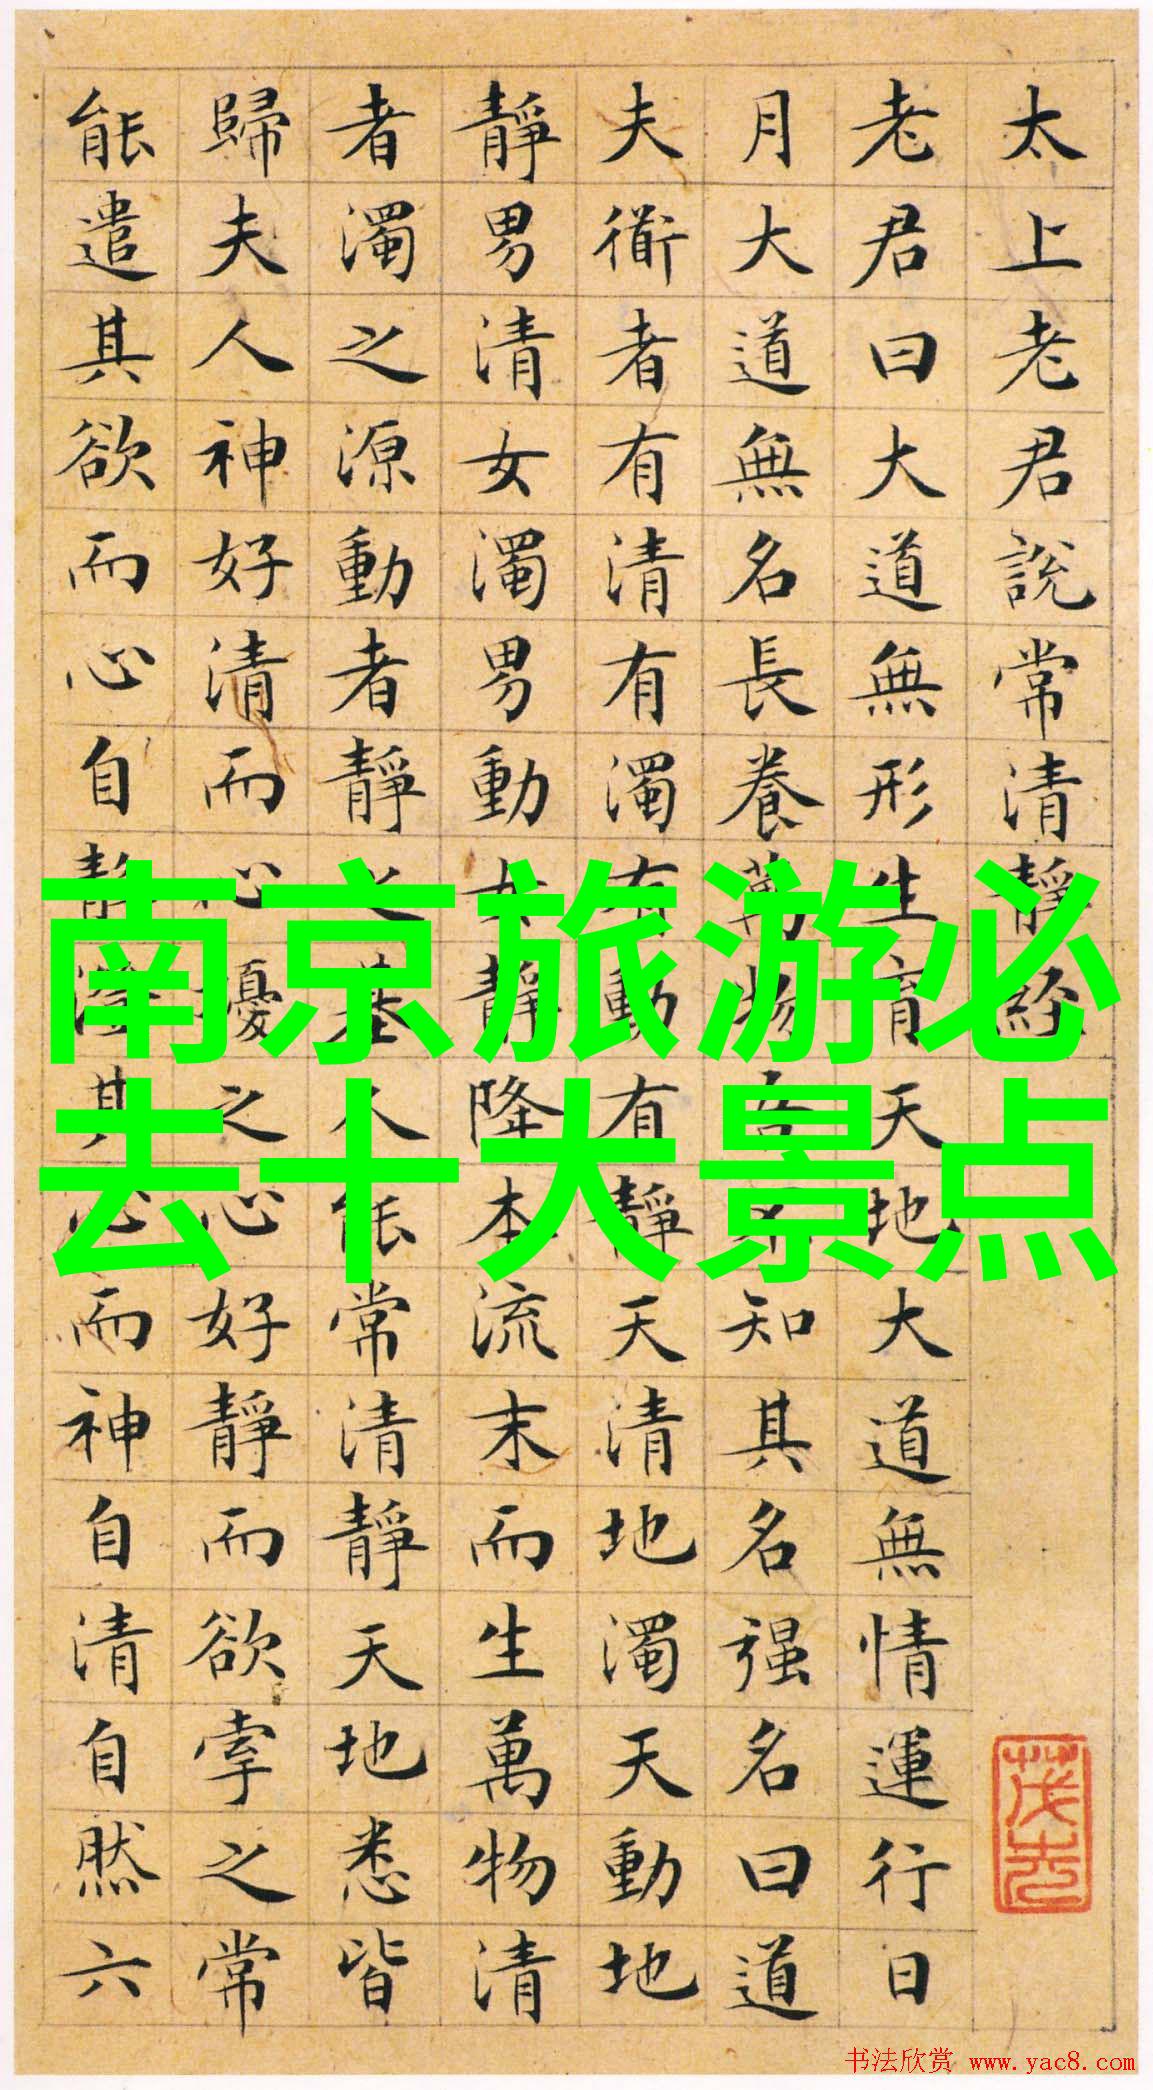 太上老君說常清靜經
老君曰大道無形生育天地大道無情運行日
月大道無名長養萬物吾不知其名强名曰道
夫衜者有清有濁有動有靜天清地濁天動地
靜男清女濁男動女靜降本流末而生萬物清
者濁之源動者靜之基人能常清靜天地悉皆
歸夫人神好清而心擾之心好靜而欲牽之常
能遣其欲而心自靜澄其心而神自清自然六
南京旅游必
去十大景点
书法欣赏 www.yac8.com